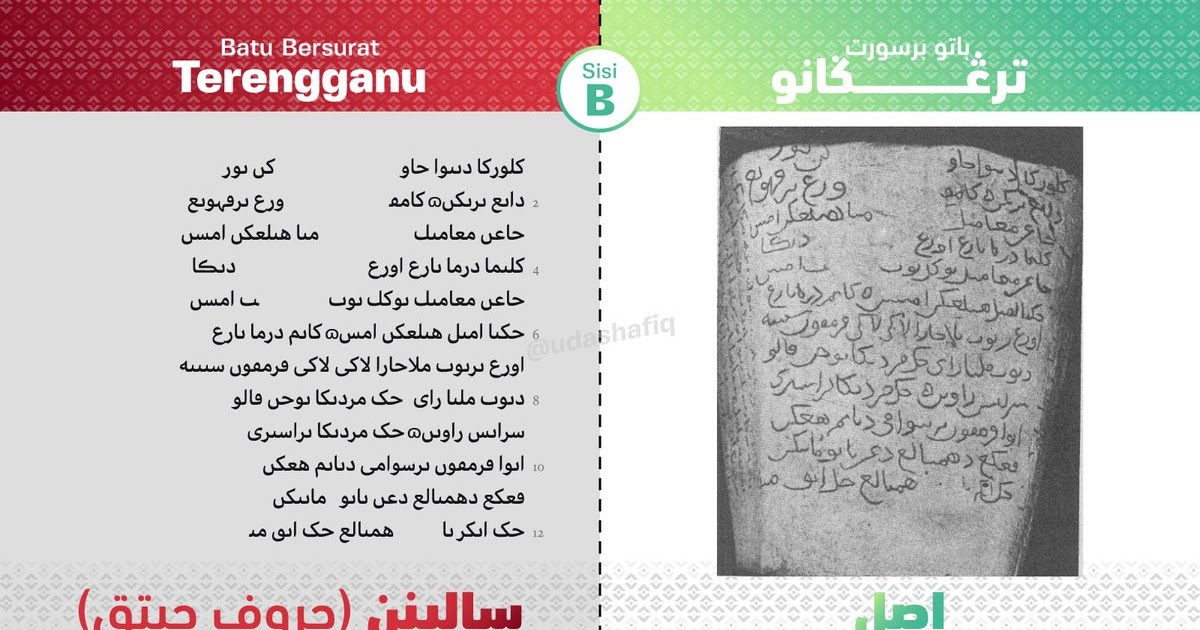 Batu Bersurat
Terengganu
Sisi
B
باتو برسورت
ترڠݢانو
كلوركا دٮٮوا حاو كں ٮور
2 داٮع ٮرٮكں۞ كامڡ ورع ٮرڡهوٮع
حاعں معامٮل مٮا هٮلعكں امٮس
4 كلٮما درما ٮارع اورع دٮكا
حاعں معامٮل ٮوكل ٮوٮ ٮ امٮس
6 حكٮا امٮل هٮلعكں امٮس۞ كاٮم درما ٮارع
اورع ٮرٮوٮ ملاحارا لاكى لاكى ڡرمڡوں سٮٮٮه
8 دٮوٮ ملٮا راى حك مردٮكا ٮوحں ڡالو
سراٮس راوٮں۞ حك مردٮكا ٮراسٮرى
10 اٮوا ڡرمڡوں ٮرسوامى دٮاٮم هعكں
ڡعكع دهمٮالع دعں ٮاٮو ماٮٮكں
12 حك اٮكر ٮا همٮالع حك اٮو مٮ
@udashafiq
سالينن (حروف چيتق)
اصل